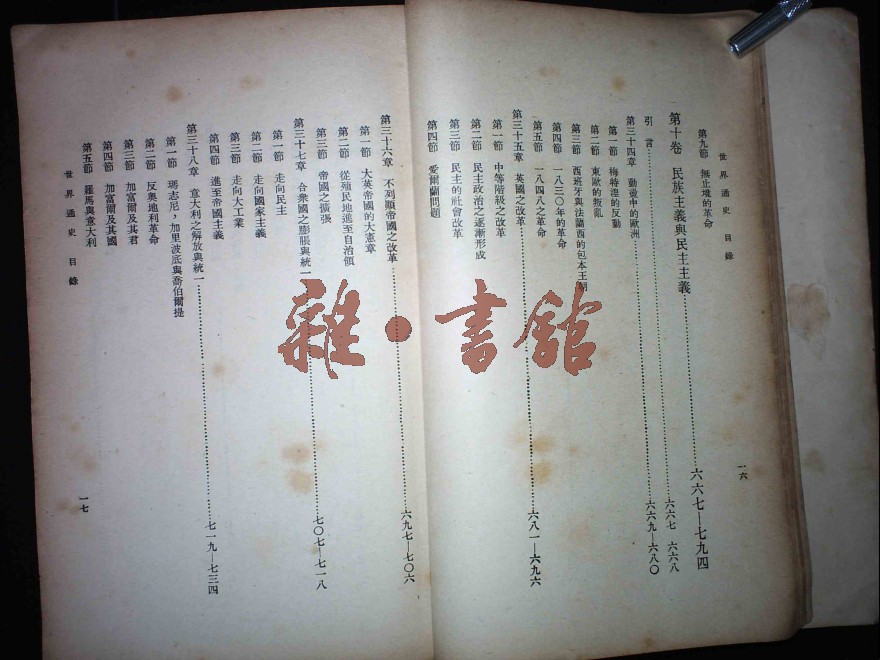 世界通史 目錄
一六
第九節 無止境的革命
第十卷 民族主義與民主主義……六六七—七九四
引言……六六七—六六八
第三十四章 動盪中的歐洲……六六九—六八〇
第一節 梅特湼的反動
第二節 東歐的叛亂
第三節 西班牙與法蘭西的包本王朝
第四節 一八三〇年的革命
第五節 一八四八之革命
第三十五章 英國之改革……六八一—六九六
第一節 中等階級之改革
第二節 民主政治之逐漸形成
第三節 民主的社會改革
第四節 愛爾蘭問題
第三十六章 不列顛帝國之改革……六九七—七〇六
第一節 大英帝國的大憲章
第二節 從殖民地進至自治領
第三節 帝國之擴張
第三十七章 合衆國之膨脹與統一……七〇七—七一八
第一節 走向民主
第二節 走向國家主義
第三節 走向大工業
第四節 進至帝國主義
第三十八章 意大利之解放與統一……七一九—七三四
第一節 瑪志尼，加里波底與喬伯爾提
第二節 反奧地利革命
第三節 加富爾及其君
第四節 加富爾及其國
第五節 羅馬與意大利
世界通史 目錄
一七
雜·書館